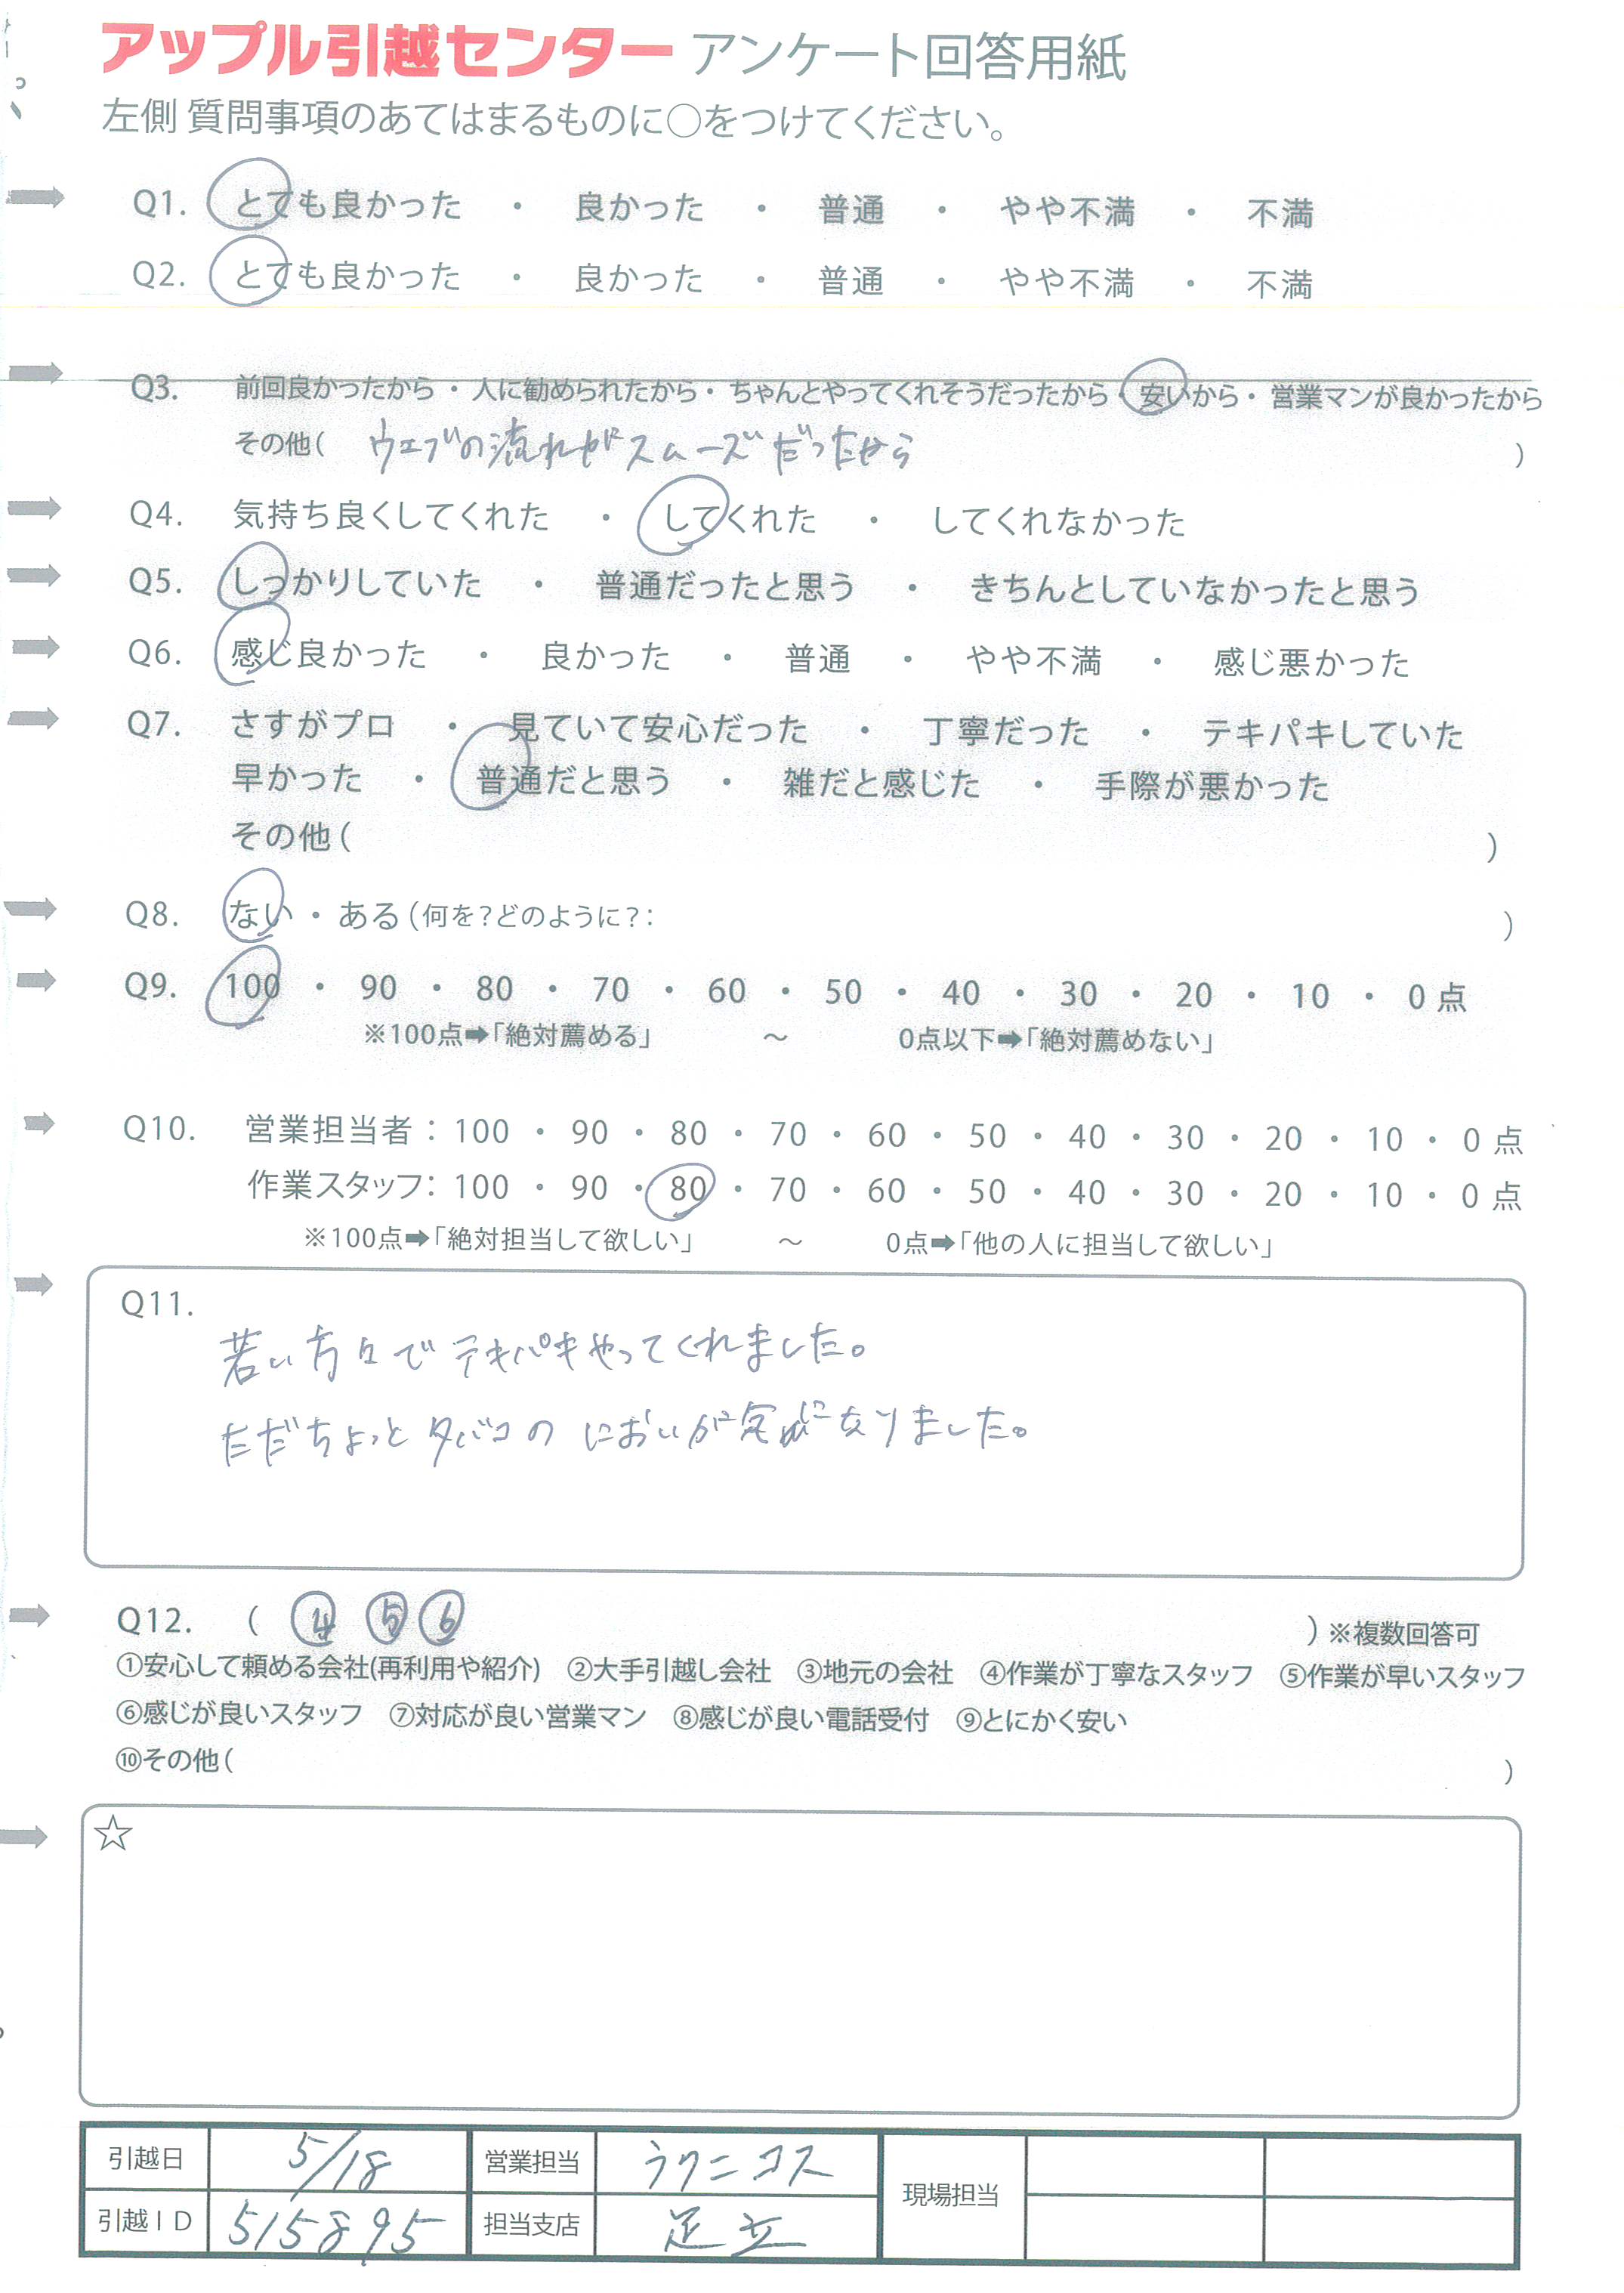 アップル引越センター アンケート回答用紙
左側 質問事項のあてはまるものに○をつけてください。
Q1. とても良かった ・ 良かった ・ 普通 ・ やや不満 ・ 不満
Q2. とても良かった ・ 良かった ・ 普通 ・ やや不満 ・ 不満
Q3. 前回良かったから ・ 人に勧められたから ・ ちゃんとやってくれそうだったから ・ 安いから ・ 営業マンが良かったから
その他( ウェブの流れがスムーズだったから )
Q4. 気持ち良くしてくれた ・ してくれた ・ してくれなかった
Q5. しっかりしていた ・ 普通だったと思う ・ きちんとしていなかったと思う
Q6. 感じ良かった ・ 良かった ・ 普通 ・ やや不満 ・ 感じ悪かった
Q7. さすがプロ ・ 見ていて安心だった ・ 丁寧だった ・ テキパキしていた
早かった ・ 普通だと思う ・ 雑だと感じた ・ 手際が悪かった
その他( )
Q8. ない ・ ある(何を?どのように?: )
Q9. 100 ・ 90 ・ 80 ・ 70 ・ 60 ・ 50 ・ 40 ・ 30 ・ 20 ・ 10 ・ 0 点
※100点➡「絶対薦める」 〜 0点以下➡「絶対薦めない」
Q10. 営業担当者：100 ・ 90 ・ 80 ・ 70 ・ 60 ・ 50 ・ 40 ・ 30 ・ 20 ・ 10 ・ 0 点
作業スタッフ：100 ・ 90 ・ 80 ・ 70 ・ 60 ・ 50 ・ 40 ・ 30 ・ 20 ・ 10 ・ 0 点
※100点➡「絶対担当して欲しい」 〜 0点➡「他の人に担当して欲しい」
Q11.
若い方々でテキパキやってくれました。
ただちょっとタバコのにおいが気になりました。
Q12. ( ④ ⑤ ⑥ ) ※複数回答可
①安心して頼める会社(再利用や紹介) ②大手引越し会社 ③地元の会社 ④作業が丁寧なスタッフ ⑤作業が早いスタッフ
⑥感じが良いスタッフ ⑦対応が良い営業マン ⑧感じが良い電話受付 ⑨とにかく安い
⑩その他( )
☆
引越日 5/18 営業担当 ラクニコス 現場担当
引越ＩＤ 515895 担当支店 足立